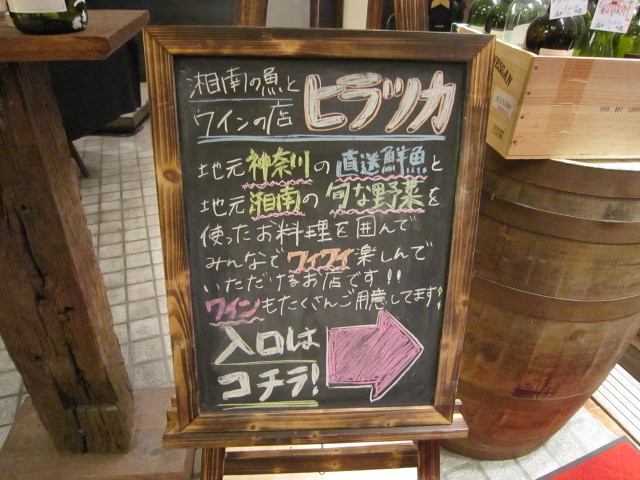 湘南の魚と
ワインの店 ヒラツカ
地元神奈川の直送鮮魚と
地元湘南の旬な野菜を
使ったお料理を囲んで
みんなでワイワイ楽しんで
いただけるお店です!!
ワインもたくさんご用意してます!
入口は
コチラ!